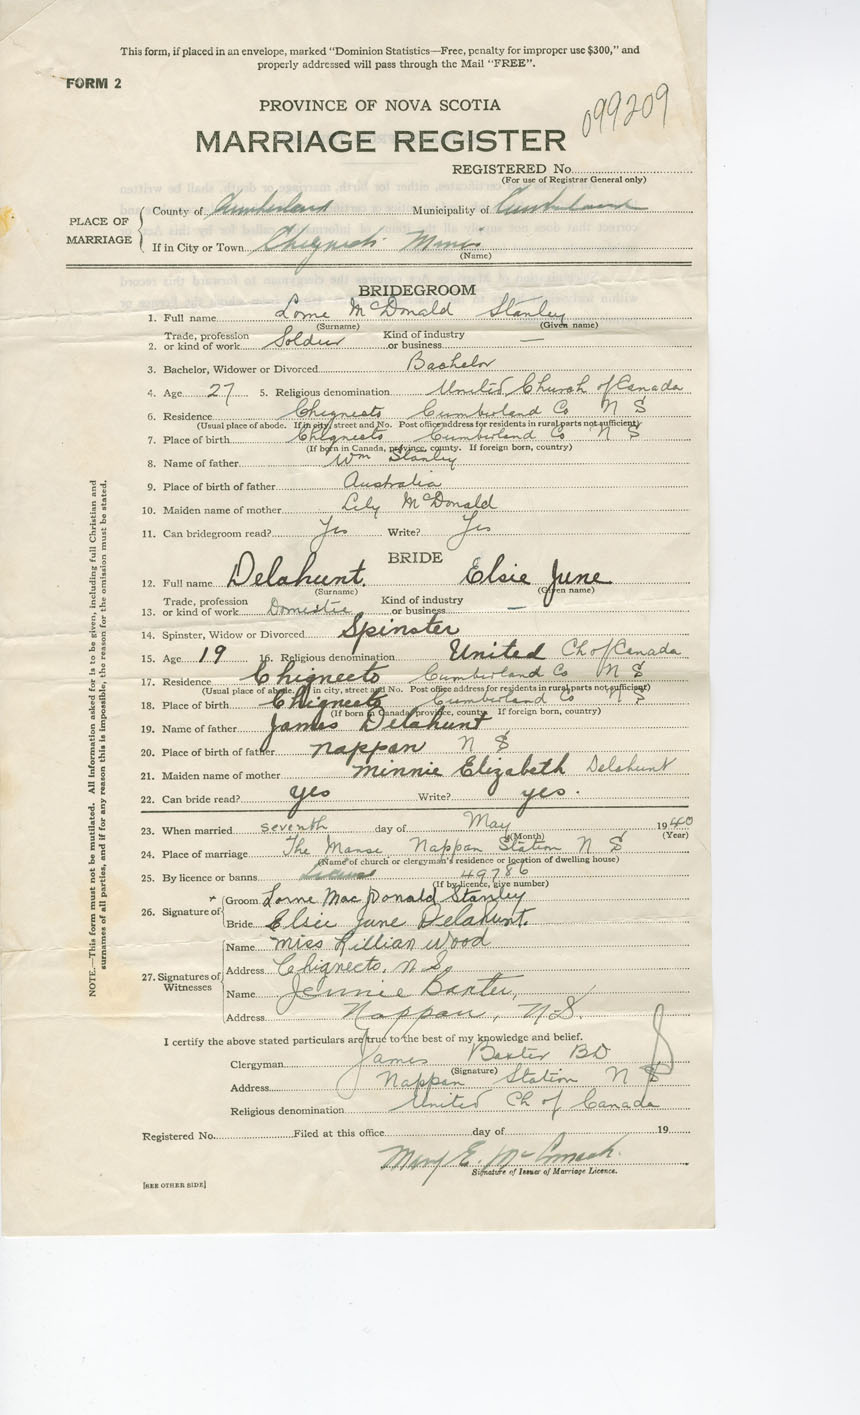 This form, if placed in an envelope, marked "Dominion Statistics—Free, penalty for improper use $300," and
properly addressed will pass through the Mail "FREE".
FORM 2
PROVINCE OF NOVA SCOTIA
099209
MARRIAGE REGISTER
REGISTERED No.
(For use of Registrar General only)
PLACE OF MARRIAGE
County of Cumberland Municipality of Cumberland
If in City or Town Chignecto Mines
(Name)
BRIDEGROOM
1. Full name Lorne McDonald Stanley
(Surname) (Given name)
2. Trade, profession or kind of work Soldier Kind of industry or business —
3. Bachelor, Widower or Divorced Bachelor
4. Age 27 5. Religious denomination United Church of Canada
6. Residence Chignecto Cumberland Co N S
(Usual place of abode. If in city, street and No. Post office address for residents in rural parts not sufficient)
7. Place of birth Chignecto Cumberland Co N S
(If born in Canada, province, county. If foreign born, country)
8. Name of father Wm Stanley
9. Place of birth of father Australia
10. Maiden name of mother Lily McDonald
11. Can bridegroom read? Yes Write? Yes
BRIDE
12. Full name Delahunt. Elsie June
(Surname) (Given name)
13. Trade, profession or kind of work Domestic Kind of industry or business —
14. Spinster, Widow or Divorced Spinster
15. Age 19 16. Religious denomination United Ch of Canada
17. Residence Chignecto Cumberland Co N S
(Usual place of abode. If in city, street and No. Post office address for residents in rural parts not sufficient)
18. Place of birth Chignecto Cumberland Co N S
(If born in Canada, province, county. If foreign born, country)
19. Name of father James Delahunt
20. Place of birth of father Nappan N S
21. Maiden name of mother Minnie Elizabeth Delahunt
22. Can bride read? yes Write? yes.
23. When married seventh day of May 1940
(Month) (Year)
24. Place of marriage The Manse Nappan Station N S
(Name of church or clergyman's residence or location of dwelling house)
25. By licence or banns License 49786
(If by licence, give number)
26. Signature of
Groom Lorne MacDonald Stanley
Bride Elsie June Delahunt.
27. Signatures of Witnesses
Name Miss Lillian Wood
Address Chignecto, N.S.
Name Jennie Baxter,
Address Nappan, N.S.
I certify the above stated particulars are true to the best of my knowledge and belief.
Clergyman James Baxter BD
(Signature)
Address Nappan Station N S
Religious denomination United Ch of Canada
Registered No. Filed at this office day of 19
Mary E.
Signature of Issuer of Marriage Licence.
[SEE OTHER SIDE]
NOTE.—This form must not be mutilated. All information asked for is to be given, including full Christian and
surnames of all parties, and if for any reason this is impossible, the reason for the omission must be stated.